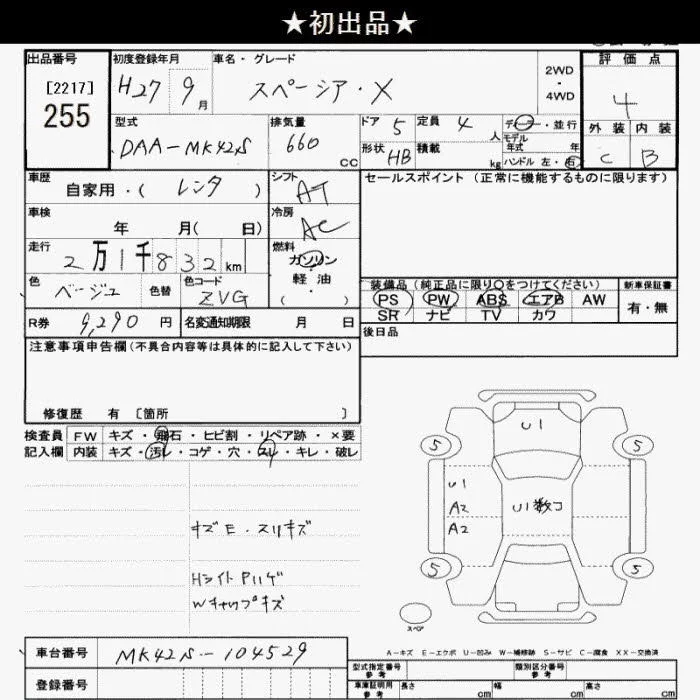 ★初出品★
出品番号
[2217]
255
初度登録年月
H27 9月
車名・グレード
スペーシア・X
2WD
・
4WD
評価点
4
外装 内装
C B
型式
DAA-MK42S
排気量
660 cc
ドア 5
定員 4 人
形状 HB
積載 kg
ディーラー・並行
モデル
年式 年
ハンドル 左・右
車歴
自家用・( レンタ )
シフト AT
車検
年 月( 日)
冷房 AC
走行
2万1千832km
燃料
ガソリン
・
軽油
( )
色 ベージュ
色替
色コード
ZVG
R券 9,290 円
名変通知期限 月 日
セールスポイント (正常に機能するものに限ります)
装備品 (純正品に限り○をつけてください)
新車保証書
PS PW ABS エアB AW
有・無
SR ナビ TV カワ
後日品
注意事項申告欄(不具合内容等は具体的に記入して下さい)
修復歴 有 〔箇所 〕
検査員 FW キズ・飛石・ヒビ割・リペア跡・×要
記入欄 内装 キズ・汚レ・コゲ・穴・スレ・キレ・破レ
キズE・スリキズ
Hライト Pハゲ
Wキャップキズ
U1
5 5
U1
A2
A2
U1数コ
5 5
スペア
A-キズ E-エクボ U-凹み W-補修跡 S-サビ C-腐食 XX-交換済
車台番号 MK42S-104529
登録番号
型式指定番号
参考
類別区分番号
参考
車庫証明用
参考
長さ cm
幅 cm
高さ cm